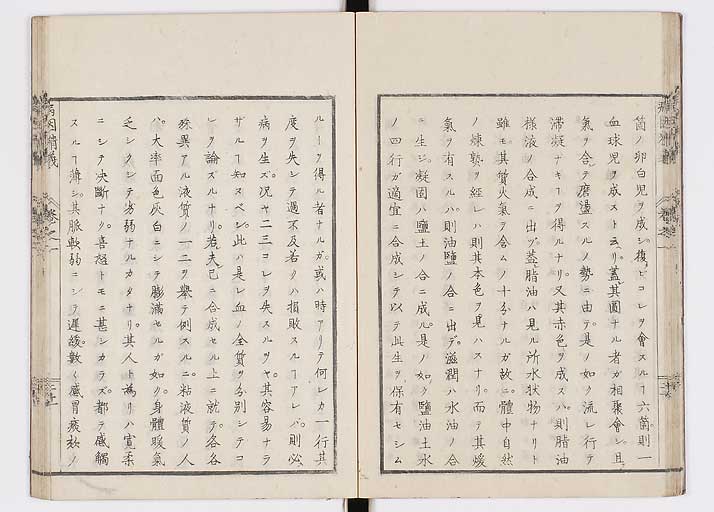 箇ノ卵白児ヲ成シ。復ビコレヲ會スルヿ六箇。則一
血球児ヲ成スト云リ。蓋其圓ナル者ガ相聚會シ。且
氣ヲ含テ磨盪スルノ勢ニ由テ。是ノ如ク流レ行テ
滞凝ナキヿヲ得ルナリ。又其赤色ヲ成スハ。則脂油
様液ノ合成ニ出ヅ。蓋脂油ハ見ル所水状物ナリト
雖モ。其質火氣ヲ含ムノ十分ナルガ故ニ。體中自然
ノ煉熟ヲ經レハ則其本色ヲ見ハスナリ。而テ其煖
氣ヲ有スルハ。則油鹽ノ合ニ出デ。滋潤ハ水油ノ合
ニ生ジ。凝固ハ鹽土ノ合ニ成ル。是ノ如ク鹽油土水
ノ四行ガ適宜ニ合成シテ以テ此生ヲ保有セシム
ルヿヲ得ル者ナルガ。或ハ時アリテ何レカ一行其
度ヲ失シテ過不及。若クハ損敗スルヿアレバ。則必
病ヲ生ズ。況ヤ二三コレヲ失スルヲヤ。其容易ナラ
ザルヿ知ヌベシ。此ハ是レ血ノ全質ヲ分別シテコ
レヲ論ズルナリ。若夫已ニ合成セル上ニ就テ。各各
殊異アル液質ノ一二ヲ擧テ例スルニ。粘液質ノ人
ハ。大率面色灰白ニシテ膨滿セルガ如ク。身體暖氣
乏シクシテ労弱ナルカタナリ。其人ト為リハ寛柔
ニシテ决斷ナク。喜怒トモニ甚シカラズ。都テ感觸
スルヿ薄シ。其脈軟弱ニシテ遅緩。數〻感冒痰飲ノ
病因精義
巻之一